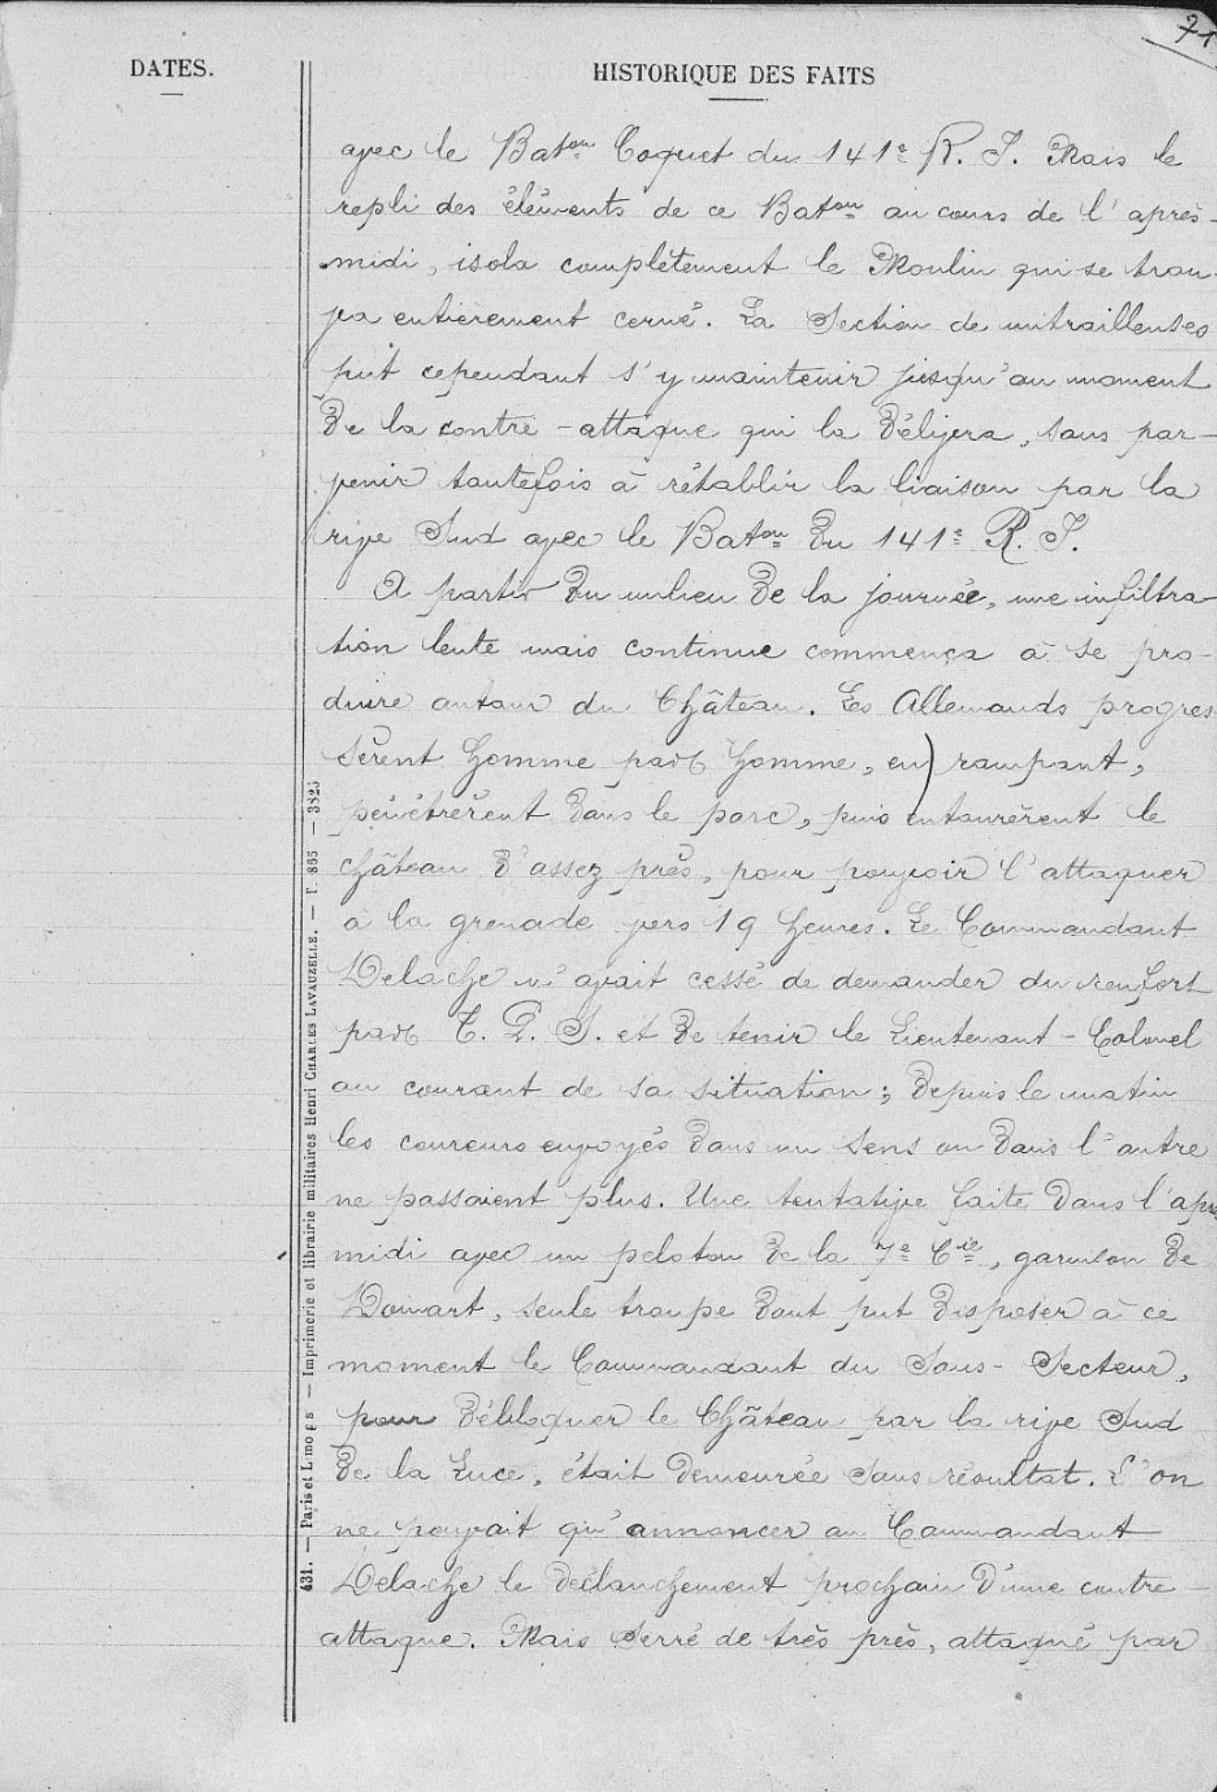 71
DATES.
HISTORIQUE DES FAITS
avec le Bat^on Coquet du 141^e R. I. Mais le
repli des éléments de ce Bat^on au cours de l'après-
midi, isola complètement le Moulin qui se trou-
va entièrement cerné. La Section de mitrailleuses
put cependant s'y maintenir jusqu'au moment
de la contre-attaque qui la délivra, sans par-
venir toutefois à rétablir la liaison par la
rive Sud avec le Bat^on du 141^e R. I.
A partir du milieu de la journée, une infiltra-
tion lente mais continue commença à se pro-
duire autour du Château. Les Allemands progres-
sèrent homme par homme, en rampant,
pénétrèrent dans le parc, puis entourèrent le
château d'assez près, pour pouvoir l'attaquer
à la grenade vers 19 heures. Le Commandant
Delache n'avait cessé de demander du renfort
par T. P. S. et de tenir le Lieutenant-Colonel
au courant de sa situation ; depuis le matin
les coureurs envoyés dans un sens ou dans l'autre
ne passaient plus. Une tentative faite dans l'après
midi avec un peloton de la 7^e C^ie, garnison de
Domart, seule troupe dont put disposer à ce
moment le Commandant du Sous-Secteur,
pour débloquer le Château par la rive Sud
de la Luce, était demeurée sans résultat. L'on
ne pouvait qu'annoncer au Commandant
Delache le déclanchement prochain d'une contre-
attaque. Mais serré de très près, attaqué par
431. — Paris et Limoges — Imprimerie et librairie militaires Henri CHARLES LAVAUZELLE. — T. 865 — 3823